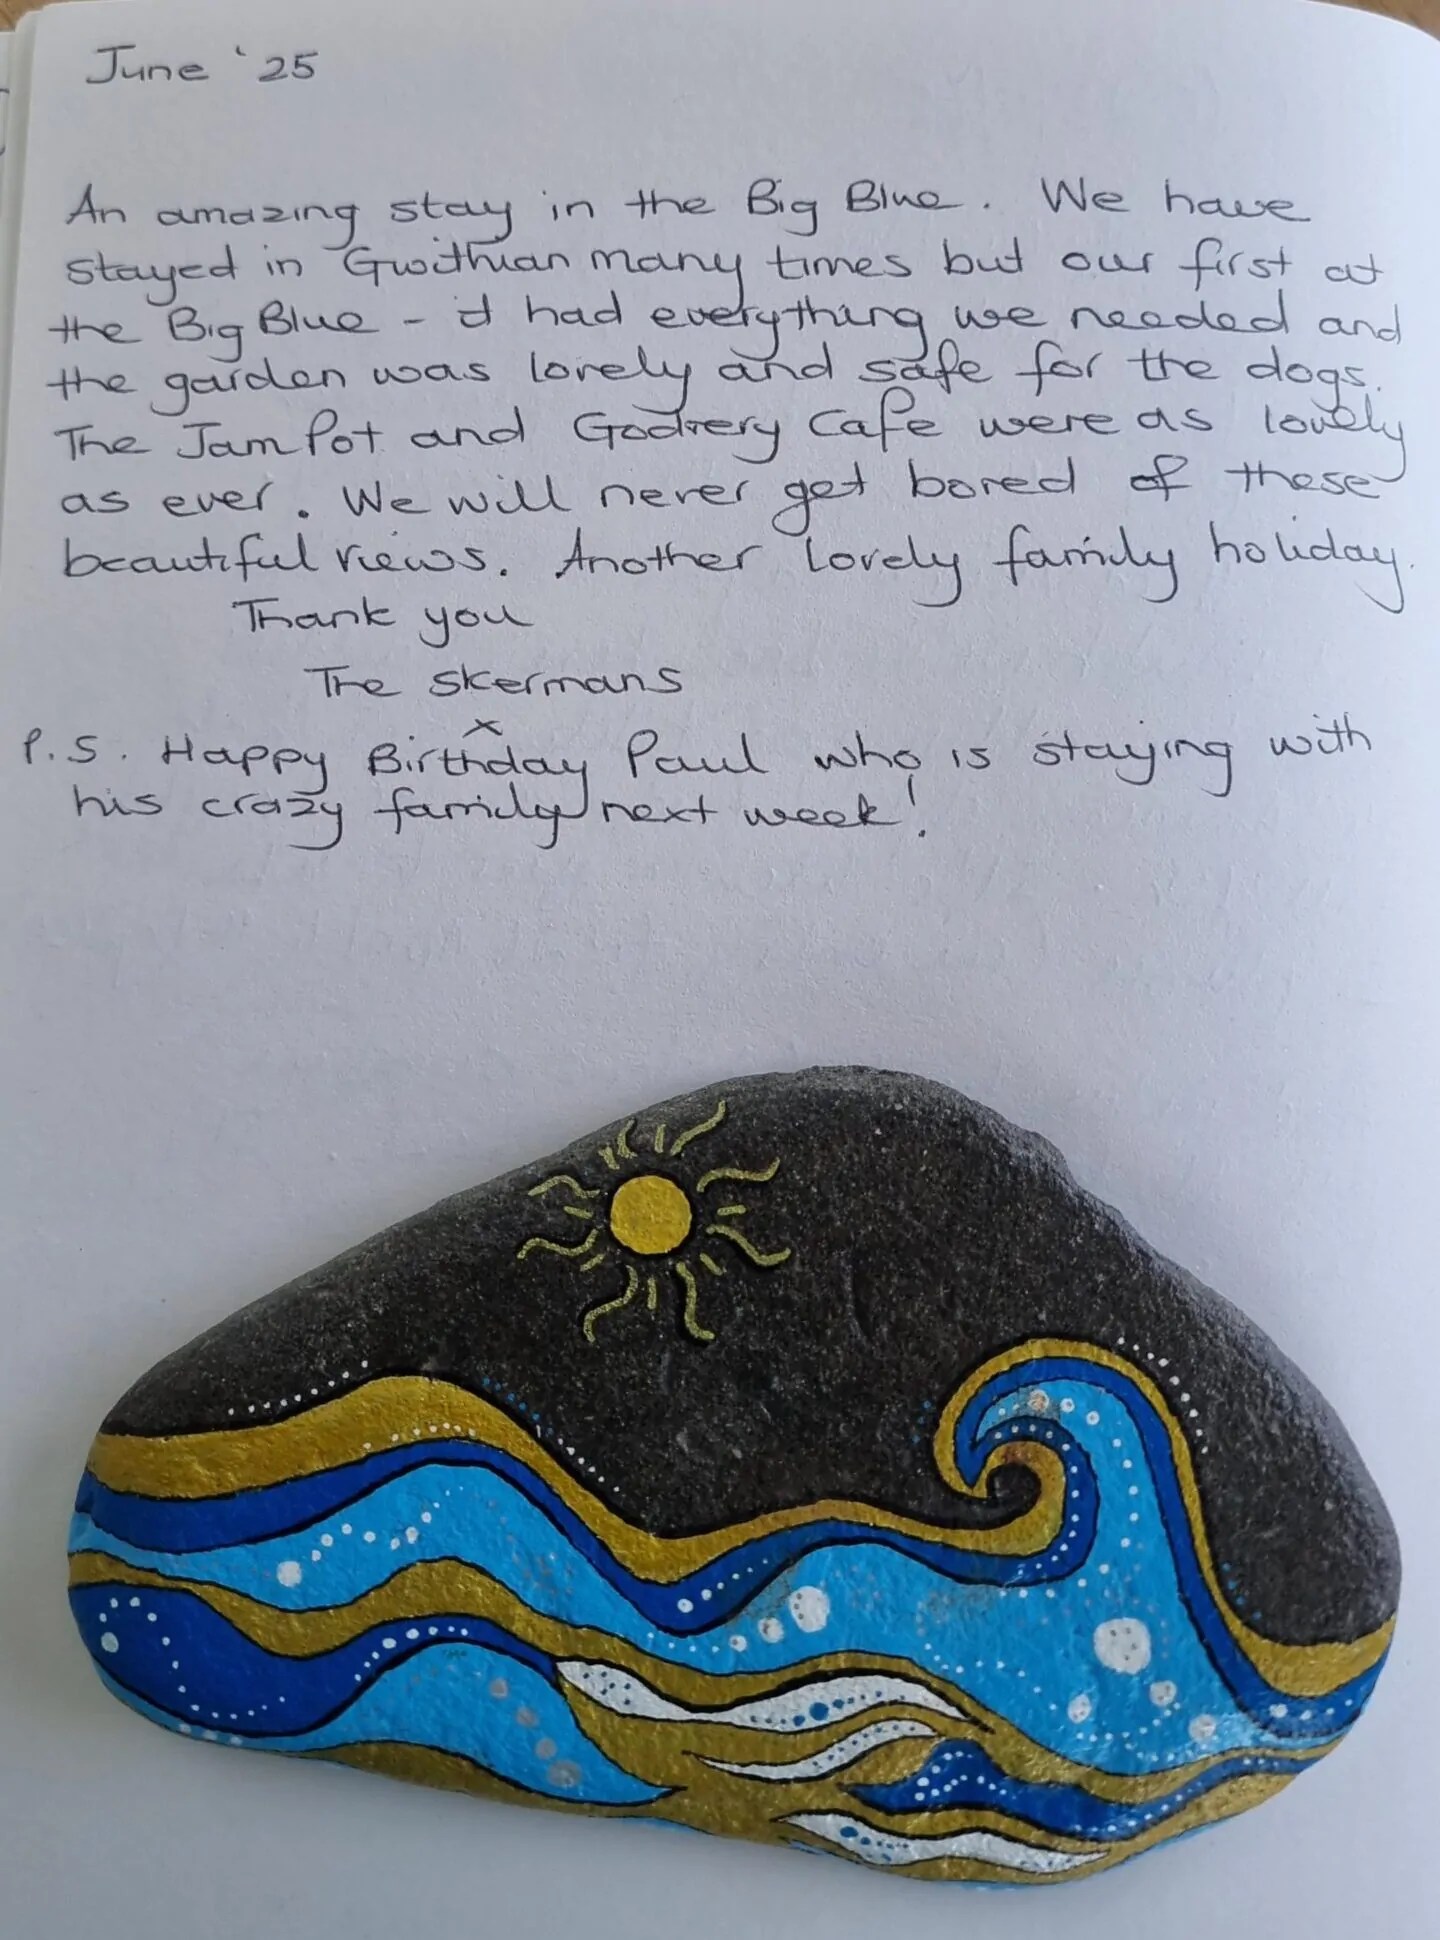 June '25
An amazing stay in the Big Blue. We have
stayed in Gwithian many times but our first at
the Big Blue - it had everything we needed and
the garden was lovely and safe for the dogs.
The Jam Pot and Godrery Cafe were as lovely
as ever. We will never get bored of these
beautiful views. Another lovely family holiday.
Thank you
The Skermans
x
P.S. Happy Birthday Paul who is staying with
his crazy family next week!